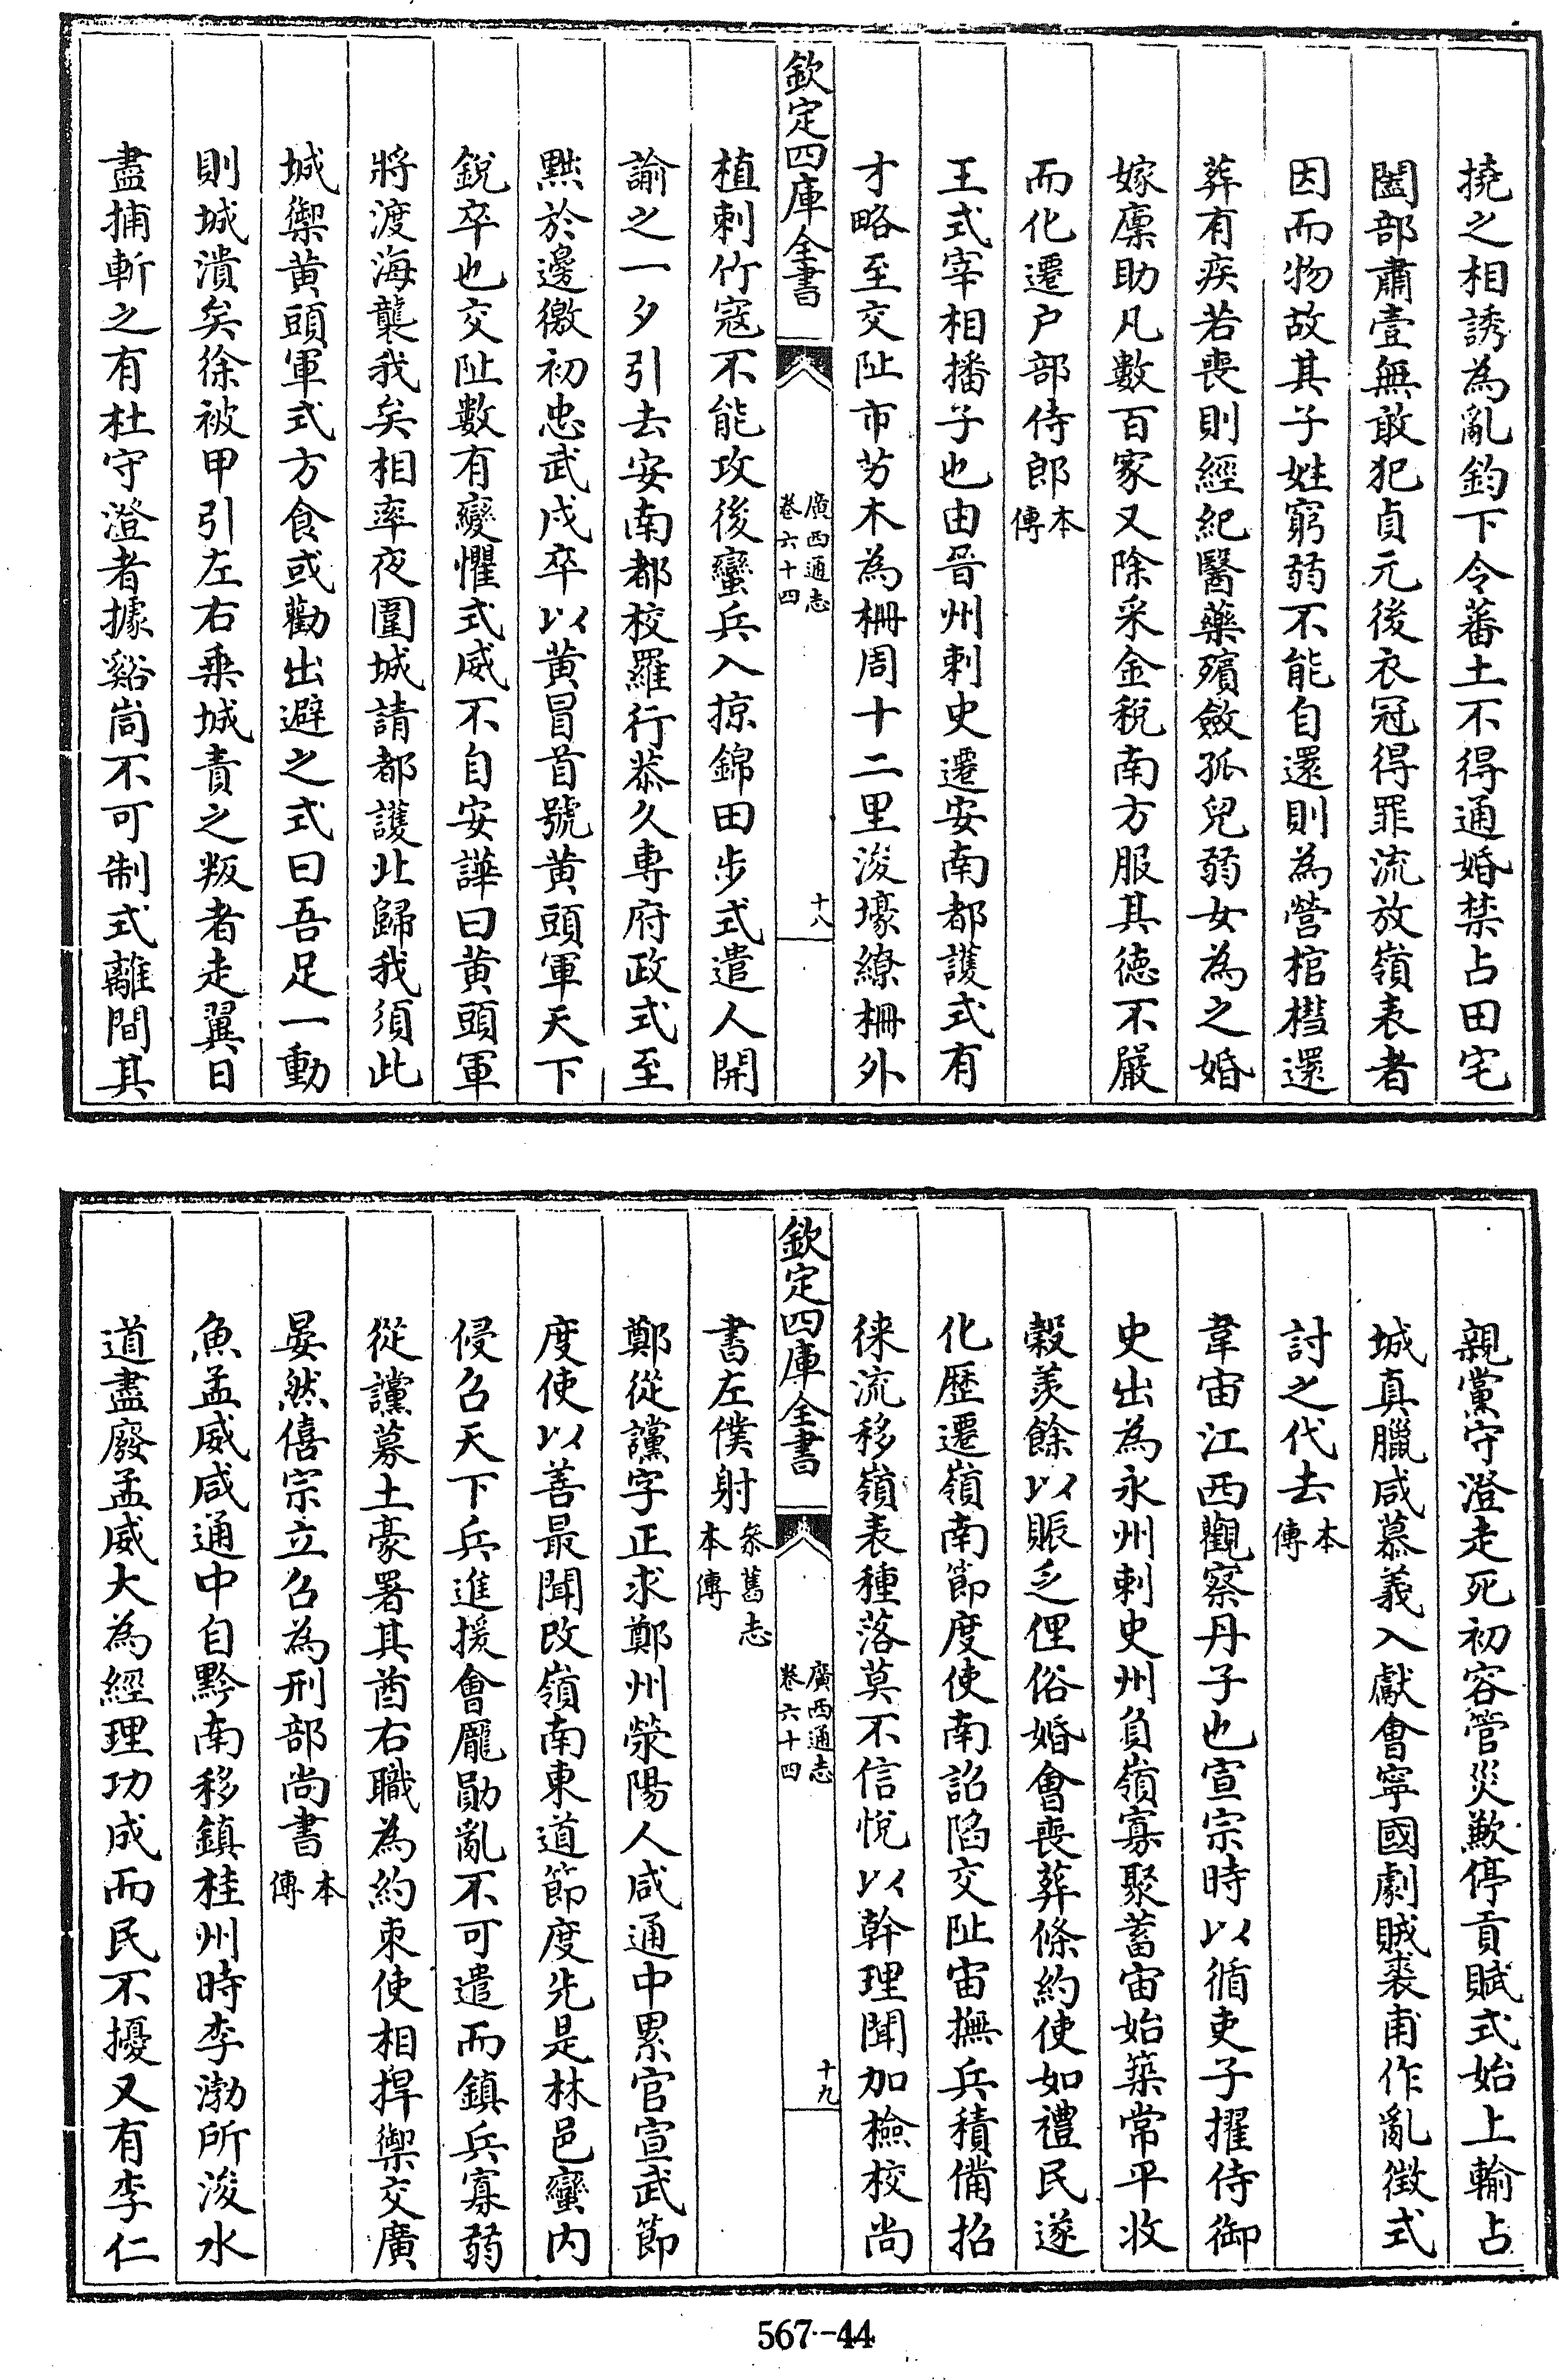 撓之相誘為亂鈞下令蕃土不得通婚禁占田宅
闔部肅壹無敢犯貞元後衣冠得罪流放嶺表者
因而物故其子姓窮弱不能自還則為營棺槥還
葬有疾若喪則經紀醫藥殯斂孤兒弱女為之婚
嫁廩助凡數百家又除采金稅南方服其德不嚴
而化遷户部侍郎本傳
王式宰相播子也由晉州刺史遷安南都護式有
才略至交阯市芀木為柵周十二里浚壕繚柵外
欽定四庫全書
廣西通志
卷六十四
十八
植刺竹寇不能攻後蠻兵入掠錦田步式遣人開
諭之一夕引去安南都校羅行恭久專府政式至
黜於邊徼初忠武戍卒以黄冒首號黄頭軍天下
銳卒也交阯數有變懼式威不自安譁曰黄頭軍
將渡海襲我矣相率夜圍城請都護北歸我須此
城禦黄頭軍式方食或勸出避之式曰吾足一動
則城潰矣徐被甲引左右乗城責之叛者走翼日
盡捕斬之有杜守澄者據谿峝不可制式離間其
親黨守澄走死初容管災歉停貢賦式始上輸占
城真臘咸慕義入獻會寧國劇賊裘甫作亂徴式
討之代去本傳
韋宙江西觀察丹子也宣宗時以循吏子擢侍御
史出為永州刺史州負嶺寡聚蓄宙始築常平收
穀羨餘以賑乏俚俗婚會喪葬條約使如禮民遂
化歴遷嶺南節度使南詔陷交阯宙撫兵積備招
徠流移嶺表種落莫不信悅以幹理聞加檢校尚
欽定四庫全書
廣西通志
卷六十四
十九
書左僕射叅舊志本傳
鄭從讜字正求鄭州滎陽人咸通中累官宣武節
度使以善最聞改嶺南東道節度先是林邑蠻内
侵召天下兵進援會龐勛亂不可遣而鎮兵寡弱
從讜募土豪署其酋右職為約束使相捍禦交廣
晏然僖宗立召為刑部尚書本傳
魚孟威咸通中自黔南移鎮桂州時李渤所浚水
道盡廢孟威大為經理功成而民不擾又有李仁
567-44